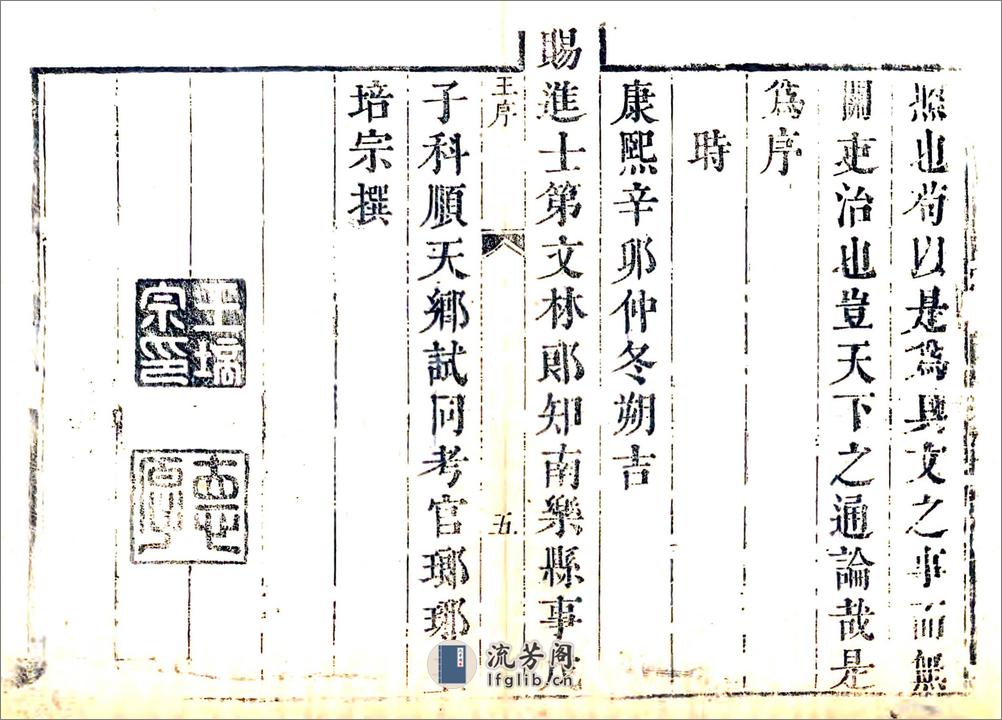 照也苟以是為具文之事而無
關吏治也豈天下之通論哉是
為序
時
康熙辛卯仲冬朔吉
賜進士第文林郎知南樂縣事
王序
五
子科順天鄉試同考官瑯琊
培宗撰
王培宗印
流芳阁
lfglib.cn